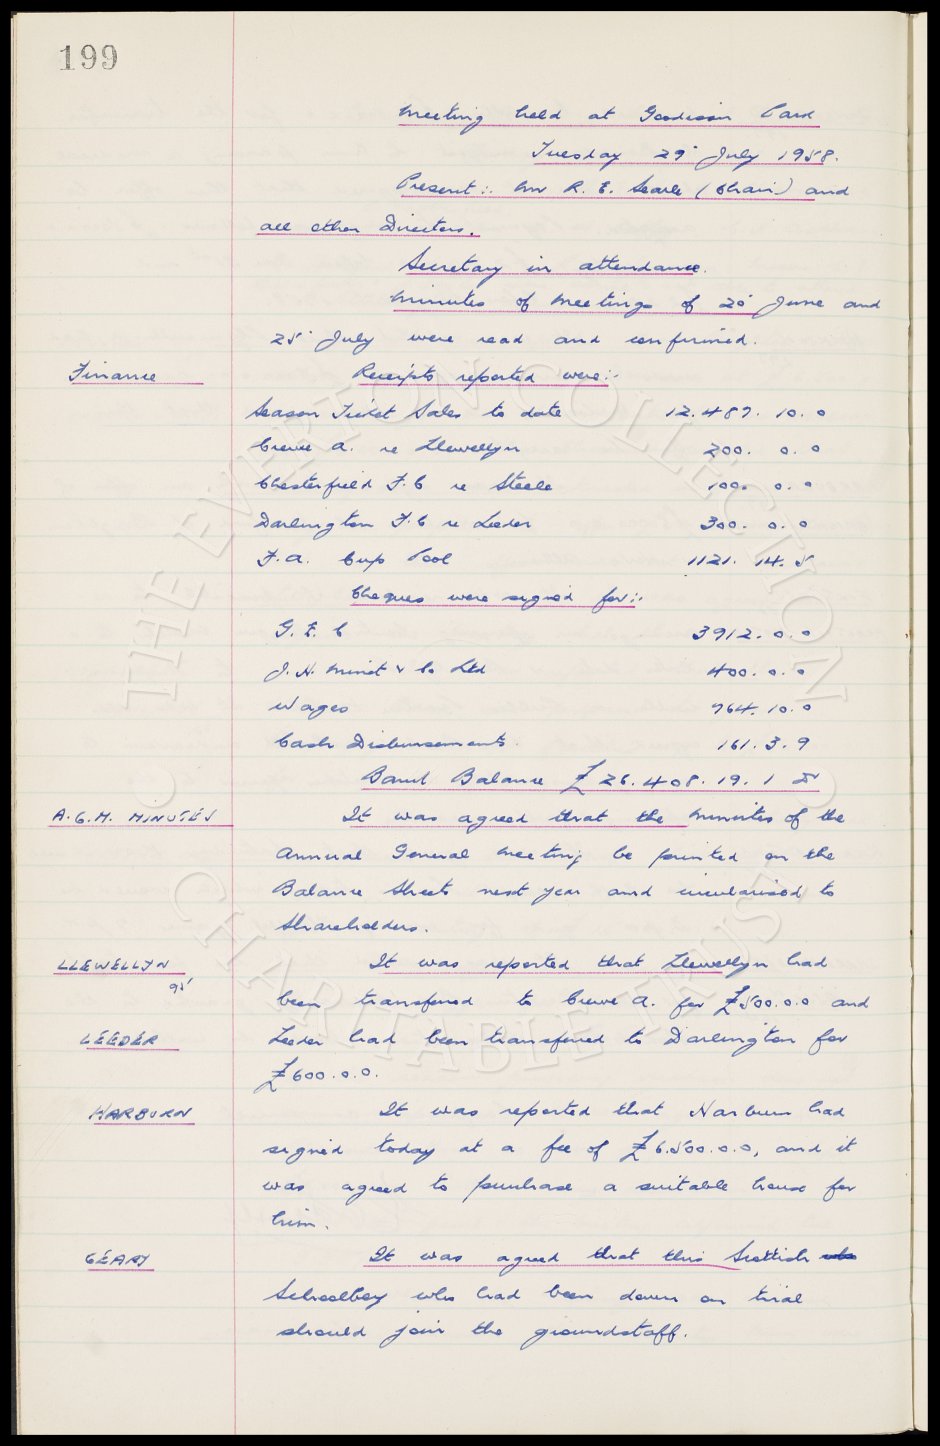 199
Meeting held at Goodison Park
Tuesday 29' July 1958.
Present:- Mr R. E. Searle (Chair) and
all other Directors.
Secretary in attendance.
Minutes of Meetings of 20' June and
25' July were read and confirmed.
Finance Receipts reported were:-
Season Ticket Sales to date 12.487. 10. 0
Crewe A. re Llewellyn 200. 0. 0
Chesterfield F.C re Steele 100. 0. 0
Darlington F.C re Leeder 300. 0. 0
F.A. Cup Pool 1121. 14. 5
Cheques were signed for:-
G. E. C 3912. 0. 0
J. H. Minet & Co Ltd 400. 0. 0
Wages 964. 10. 0
Cash Disbursements. 161. 3. 9
Bank Balance £26.408.19.1 Dr
A.G.M. MINUTES It was agreed that the Minutes of the
Annual General Meeting be printed on the
Balance Sheets next year and circularised to
Shareholders.
LLEWELLYN It was reported that Llewellyn had
95
been transferred to Crewe A. for £500.0.0 and
LEEDER Leeder had been transferred to Darlington for
£600.0.0.
HARBURN It was reported that Harburn had
signed today at a fee of £6.500.0.0, and it
was agreed to purchase a suitable house for
him.
GEARY It was agreed that this Scottish
Schoolboy who had been down on trial
should join the groundstaff.
THE EVERTON COLLECTION
CHARITABLE TRUST